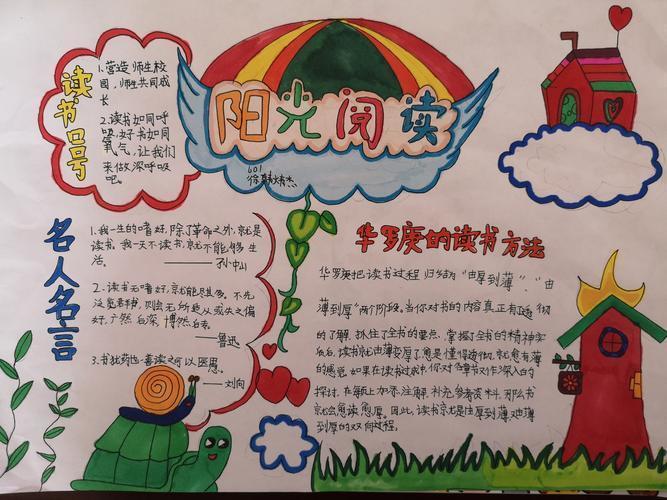 阳光阅读
601
读书口号
1.营造师生校
园，师生共同成
长
2.读书如同呼
吸，好书如同
氧气，让我们
来做深呼吸
吧。
名人名言
1.我一生的嗜好，除了革命之外，就是
读书。我一天不读书，就不能够生
活。
——孙中山
2.读书无嗜好，就能尽其多。不先
泛览群书，则会无所适从或失之偏
好，广然后深，博然后专。
——鲁迅
3.书犹药也，善读之可以医愚。
——刘向
华罗庚的读书方法
华罗庚把读书过程归结为“由厚到薄”、“由
薄到厚”两个阶段。当你对书的内容真正有了透彻
的了解，抓住了全书的要点，掌握了全书的精神实
质后，读书就由厚变薄了愈是懂得透彻，就愈有薄
的感觉。如果在读书过程中，你对各章节又作深入的
探讨，在每页上加添注解，补充参考资料，那么书
就会愈读愈厚。因此，读书就是由厚到薄，又由薄
到厚的双向过程。